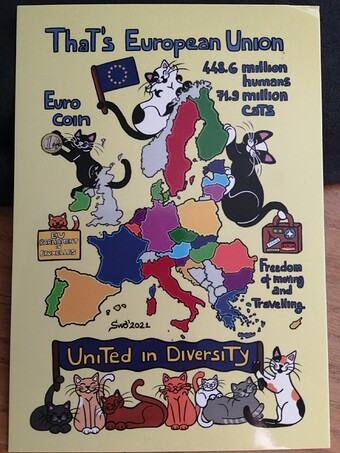 That's European Union
448.6 million
humans
71.9 million
cats
Euro
coin
EU
Parlement
Bruxelles
Freedom
of moving
and
Travelling
Swo'2021
United in Diversity